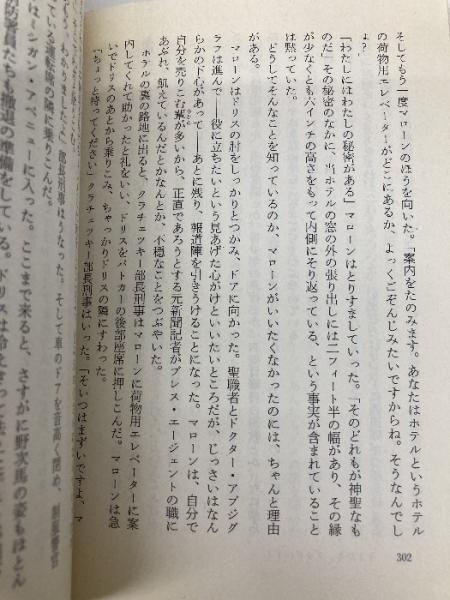 そしてもう一度マローンのほうを向いた。「案内をたのみます。あなたはホテルというホテル
の荷物用エレベーターがどこにあるか、よっくごぞんじみたいですからね。そうなんでし
ょ?」
「わたしにはわたしの秘密がある」マローンはとりすましていった。「そのどれもが神聖なも
のだ」その秘密のなかに、当ホテルの窓の外の張り出しには二フィート半の幅があり、その縁
が少なくとも六インチの高さをもって内側にそり返っている、という事実が含まれていること
は黙っていた。
どうしてそんなことを知っているのか、マローンがいいたくなかったのには、ちゃんと理由
がある。
マローンはドリスの肘をしっかりとつかみ、ドアに向かった。聖職者とドクター・アプジグ
ラフは進んで——役に立ちたいという見あげた心がけといいたいところだが、じっさいはなん
らかの下心があって——あとに残り、報道陣を引きうけることになった。マローンは、自分で
自分を売りこむ輩が多いから、正直であろうとする元新聞記者がプレス・エージェントの職に
あぶれ、飢えているんだとかなんとか、不穏なことをつぶやいた。
ホテルの裏の路地に出ると、クラチェッキー部長刑事はマローンに荷物用エレベーターに案
内してくれて助かったと礼をいい、ドリスをパトカーの後部座席に押しこんだ。マローンは急
いでドリスのあとから乗りこみ、ちゃっかりドリスの隣にすわった。
「ちょっと待ってください」クラチェッキー部長刑事はいった。「そいつはまずいですよ、マ
部長刑事はいった。そして車のドアを音高く閉め、
ている運転手の隣に乗りこんだ。
に入った。ここまで来ると、さすがに野次馬の姿もほとん
たちも撤退の準備をしている。ドリスは
302